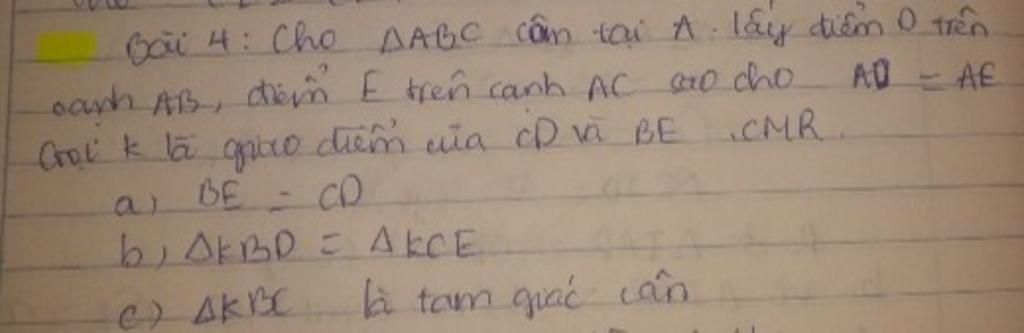 Bài 4: Cho ΔABC cân tại A. lấy điểm D trên
cạnh AB, điểm E trên cạnh AC sao cho AD = AE
Gọi K là giao điểm của CD và BE .CMR.
a) BE = CD
b) ΔKBD = ΔKCE
c) ΔKBC là tam giác cân